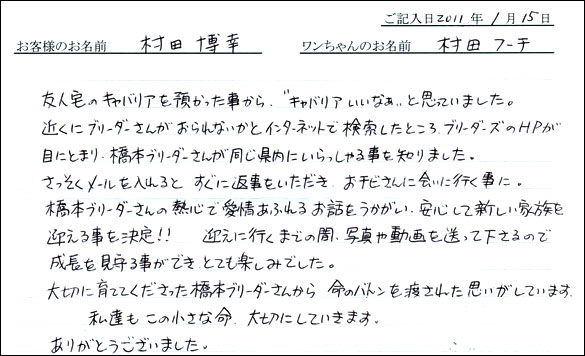 ご記入日 2011 年 1 月 15 日
お客様のお名前 村田 博幸 ワンちゃんのお名前 村田 フーチ
友人宅のキャバリアを預かった事から、"キャバリア いいなぁ〟と思っていました。
近くにブリーダーさんがおられないかとインターネットで検索したところ、ブリーダーズのHPが
目にとまり、橋本ブリーダーさんが同じ県内にいらっしゃる事を知りました。
さっそくメールを入れると すぐに返事をいただき、おチビさんに会いに行く事に。
橋本ブリーダーさんの熱心で愛情あふれるお話をうかがい、安心して新しい家族を
迎える事を決定!! 迎えに行くまでの間、写真や動画を送って下さるので
成長を見守る事ができ、とても楽しみでした。
大切に育ててくださった橋本ブリーダーさんから 命のバトンを渡された思いがしています。
私達も この小さな命、大切にしていきます。
ありがとうございました。